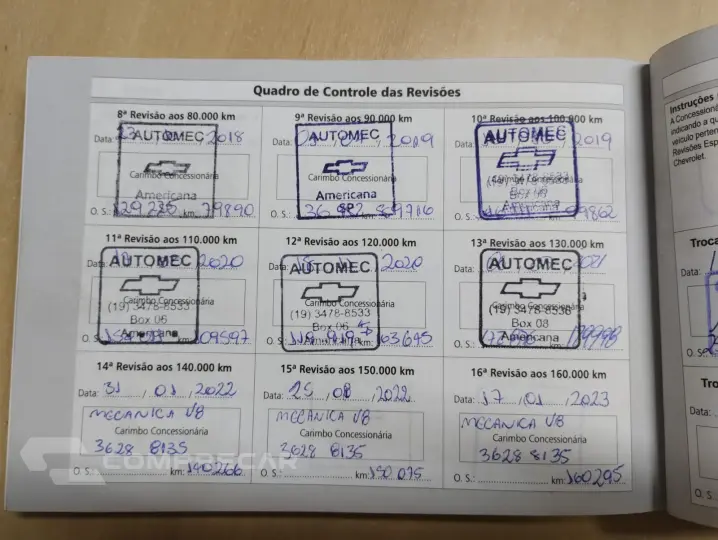 Quadro de Controle das Revisões
8ª Revisão aos 80.000 km
Data: 2018
AUTOMEC
Carimbo Concessionária
Americana
O. S.: km: 79890
9ª Revisão aos 90.000 km
Data: 2019
AUTOMEC
Carimbo Concessionária
Americana
SP
O. S.: km: 89716
10ª Revisão aos 100.000 km
Data: 2019
AUTOMEC
Americana
O. S.: 99862
11ª Revisão aos 110.000 km
Data: 2020
AUTOMEC
Carimbo Concessionária
(19) 3478-8533
Box 06
Americana
O. S.: km: 109597
12ª Revisão aos 120.000 km
Data: 2020
AUTOMEC
Carimbo Concessionária
(19) 3478-8533
Box 06
Americana
O. S.:
13ª Revisão aos 130.000 km
Data:
AUTOMEC
Carimbo Concessionária
Box 08
Americana
O. S.: km:
14ª Revisão aos 140.000 km
Data: 31 / 01 / 2022
MECANICA V8
Carimbo Concessionária
3628 8135
O. S.: km: 140266
15ª Revisão aos 150.000 km
Data: 25 / 08 / 2022
MECANICA V8
Carimbo Concessionária
3628 8135
O. S.: km: 150075
16ª Revisão aos 160.000 km
Data: 17 / 01 / 2023
MECANICA V8
Carimbo Concessionária
3628 8135
O. S.: km: 160295
Instruções
A Concessioná
indicando a qu
veículo perten
Revisões Esp
Chevrolet.
Troca
Data:
O. S.
Tro
Data:
O. S.
COMPRECAR